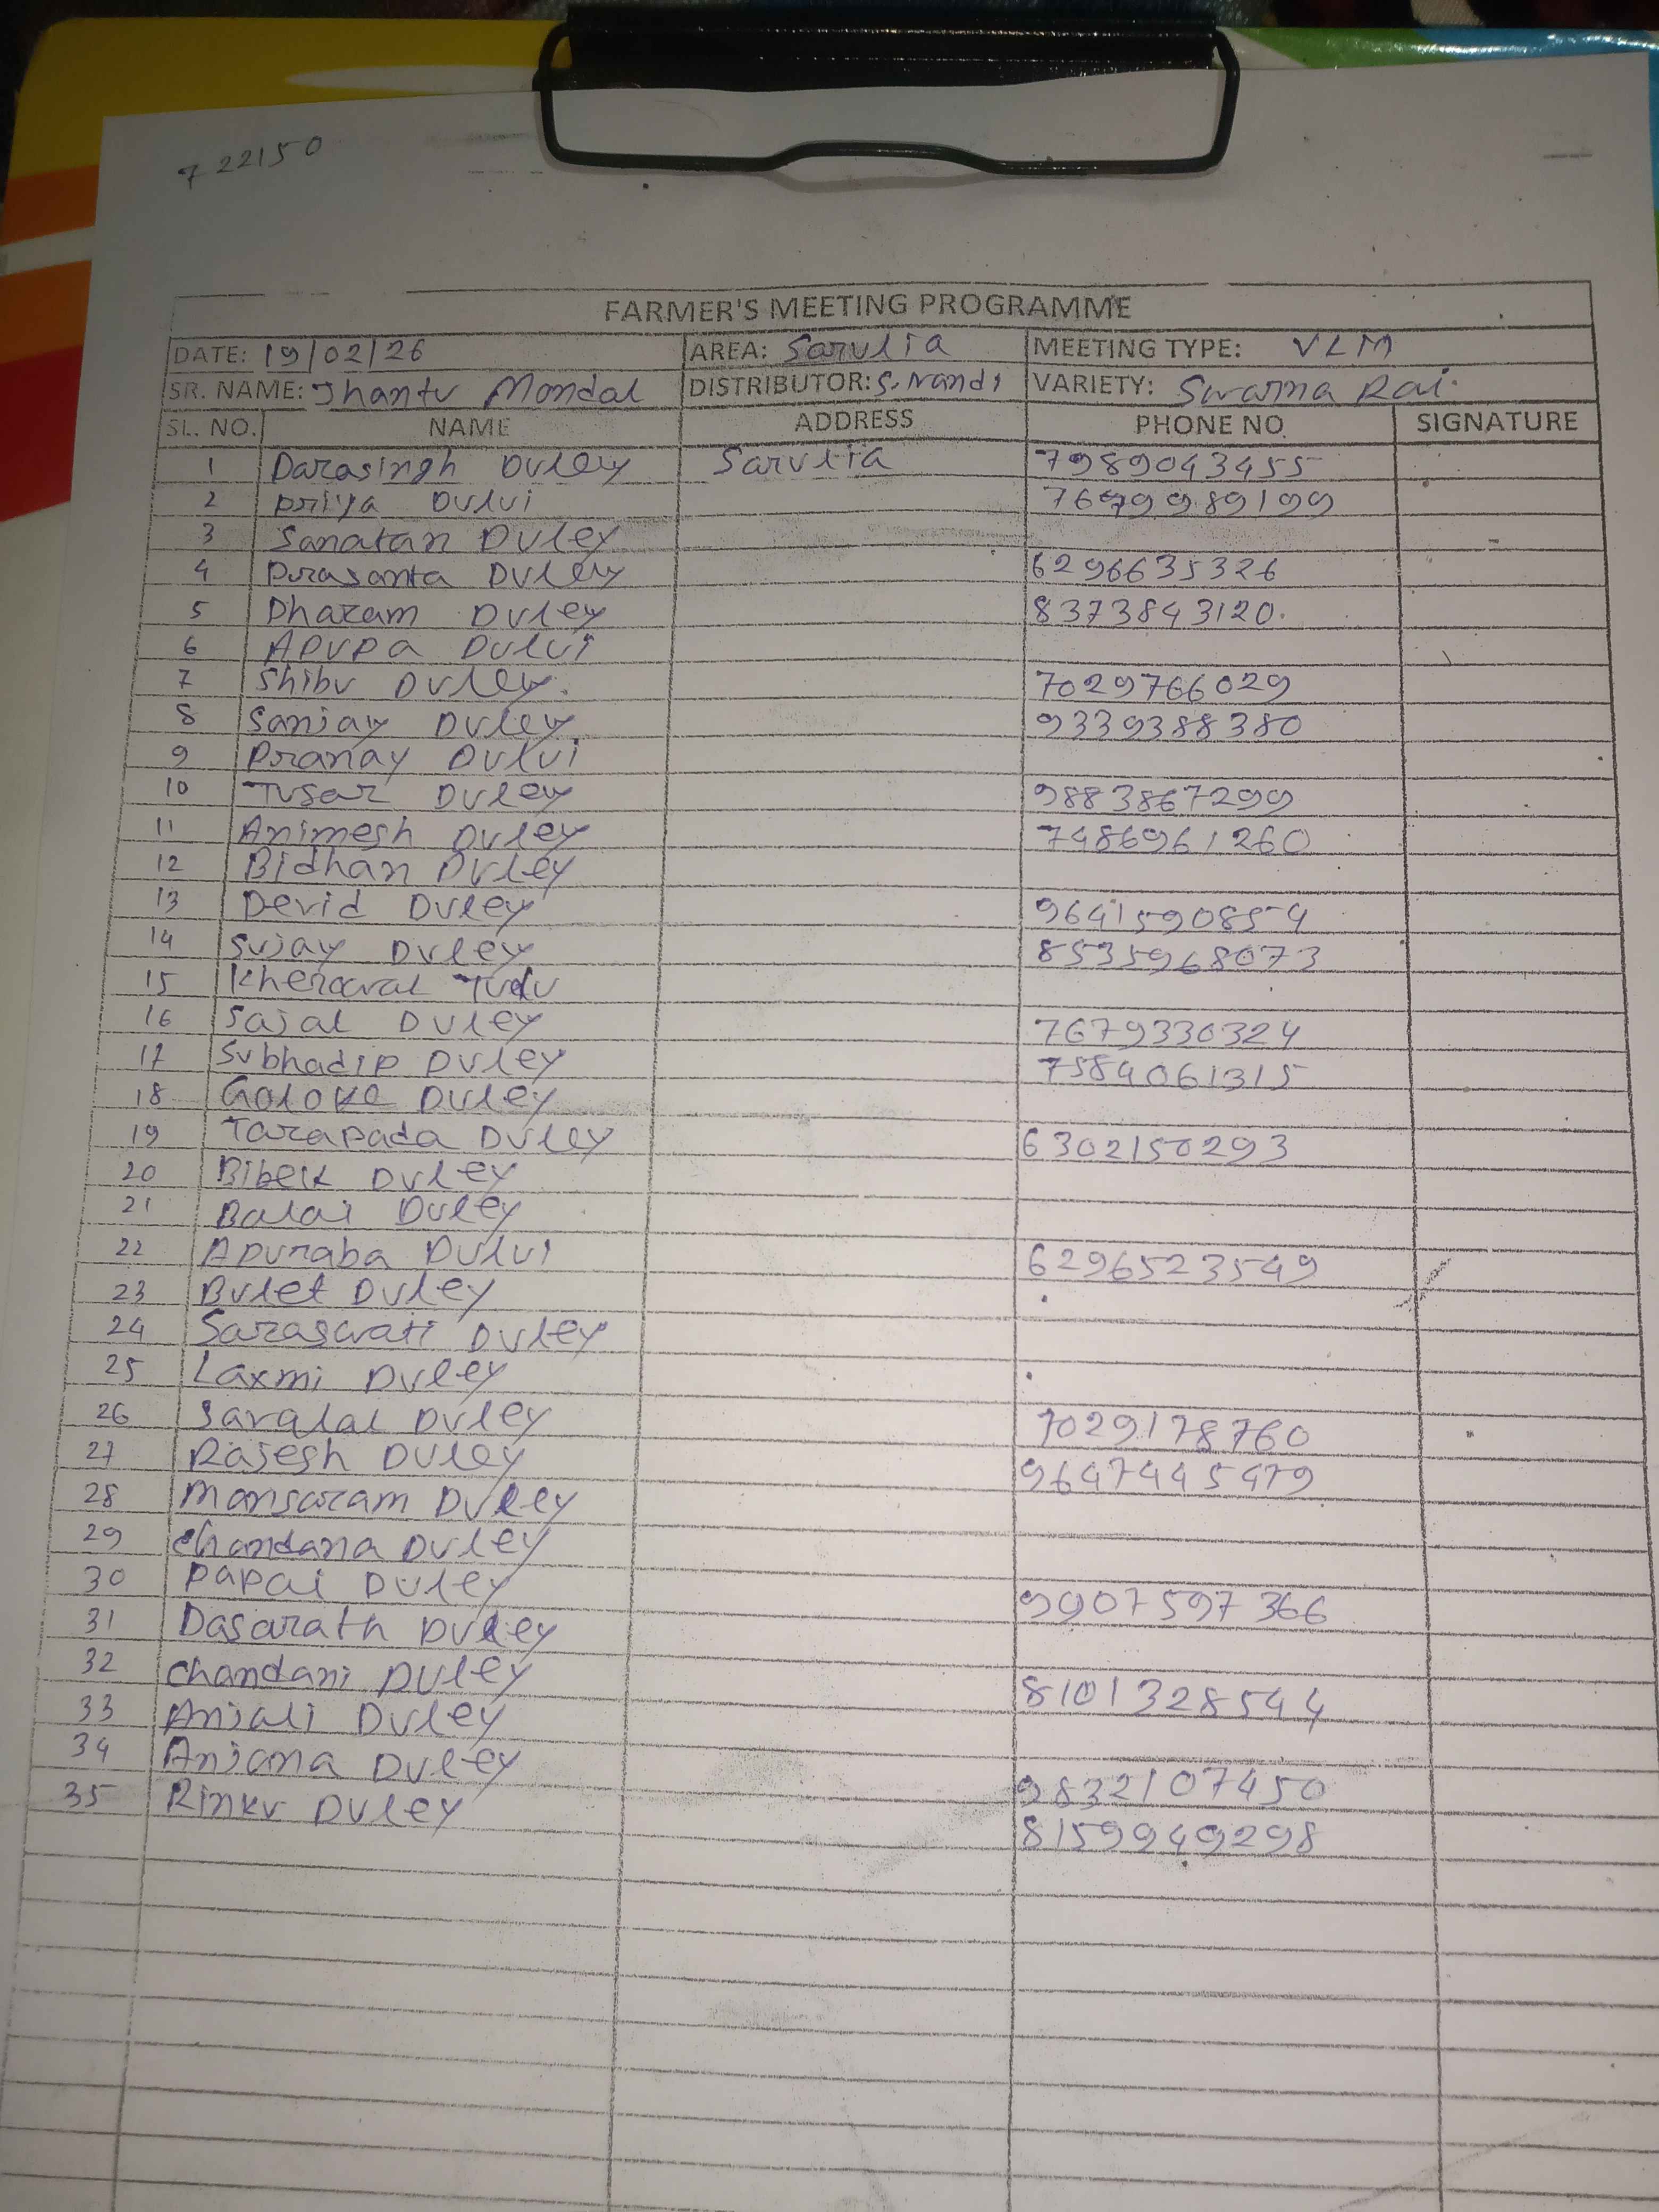 722150
FARMER'S MEETING PROGRAMME
DATE: 19/02/26 AREA: Sarulia MEETING TYPE: VLM
SR. NAME: Jhantu Mondal DISTRIBUTOR: S. Nandi VARIETY: Swarna Rai.
SL. NO. NAME ADDRESS PHONE NO. SIGNATURE
1 Darasingh Duley Sarulia 7989043455
2 Priya Dului
3 Sanatan Duley
4 Prasanta Duley 6296635326
5 Dharam Duley 8373843120.
6 Apupa Dului
7 Shibu Duley. 7029766029
8 Sanjay Duley 9339388380
9 Pranay Dului
10 Tusar Duley 9883867299
11 Animesh Duley 7486961260
12 Bidhan Duley
13 Devid Duley 9641590854
14 Sujay Duley 8535968073
15 Kheroaval Tudu
16 Sajal Duley 7679330324
17 Subhadip Duley 7584061315
18 Goloke Duley
19 Tarapada Duley 6302150293
20 Bibek Duley
21 Balai Duley
22 Apuraba Dului 6296523549
23 Bulet Duley
24 Saraswati Duley
25 Laxmi Duley
26 Savalal Duley 7029178760
27 Rajesh Duley 9647445479
28 Mansaram Duley
29 Chandana Duley
30 Papai Duley 9907597366
31 Dasarath Duley
32 Chandani Duley 8101328544
33 Anjali Duley
34 Anjana Duley 9832107450
35 Rinku Duley 8159949298